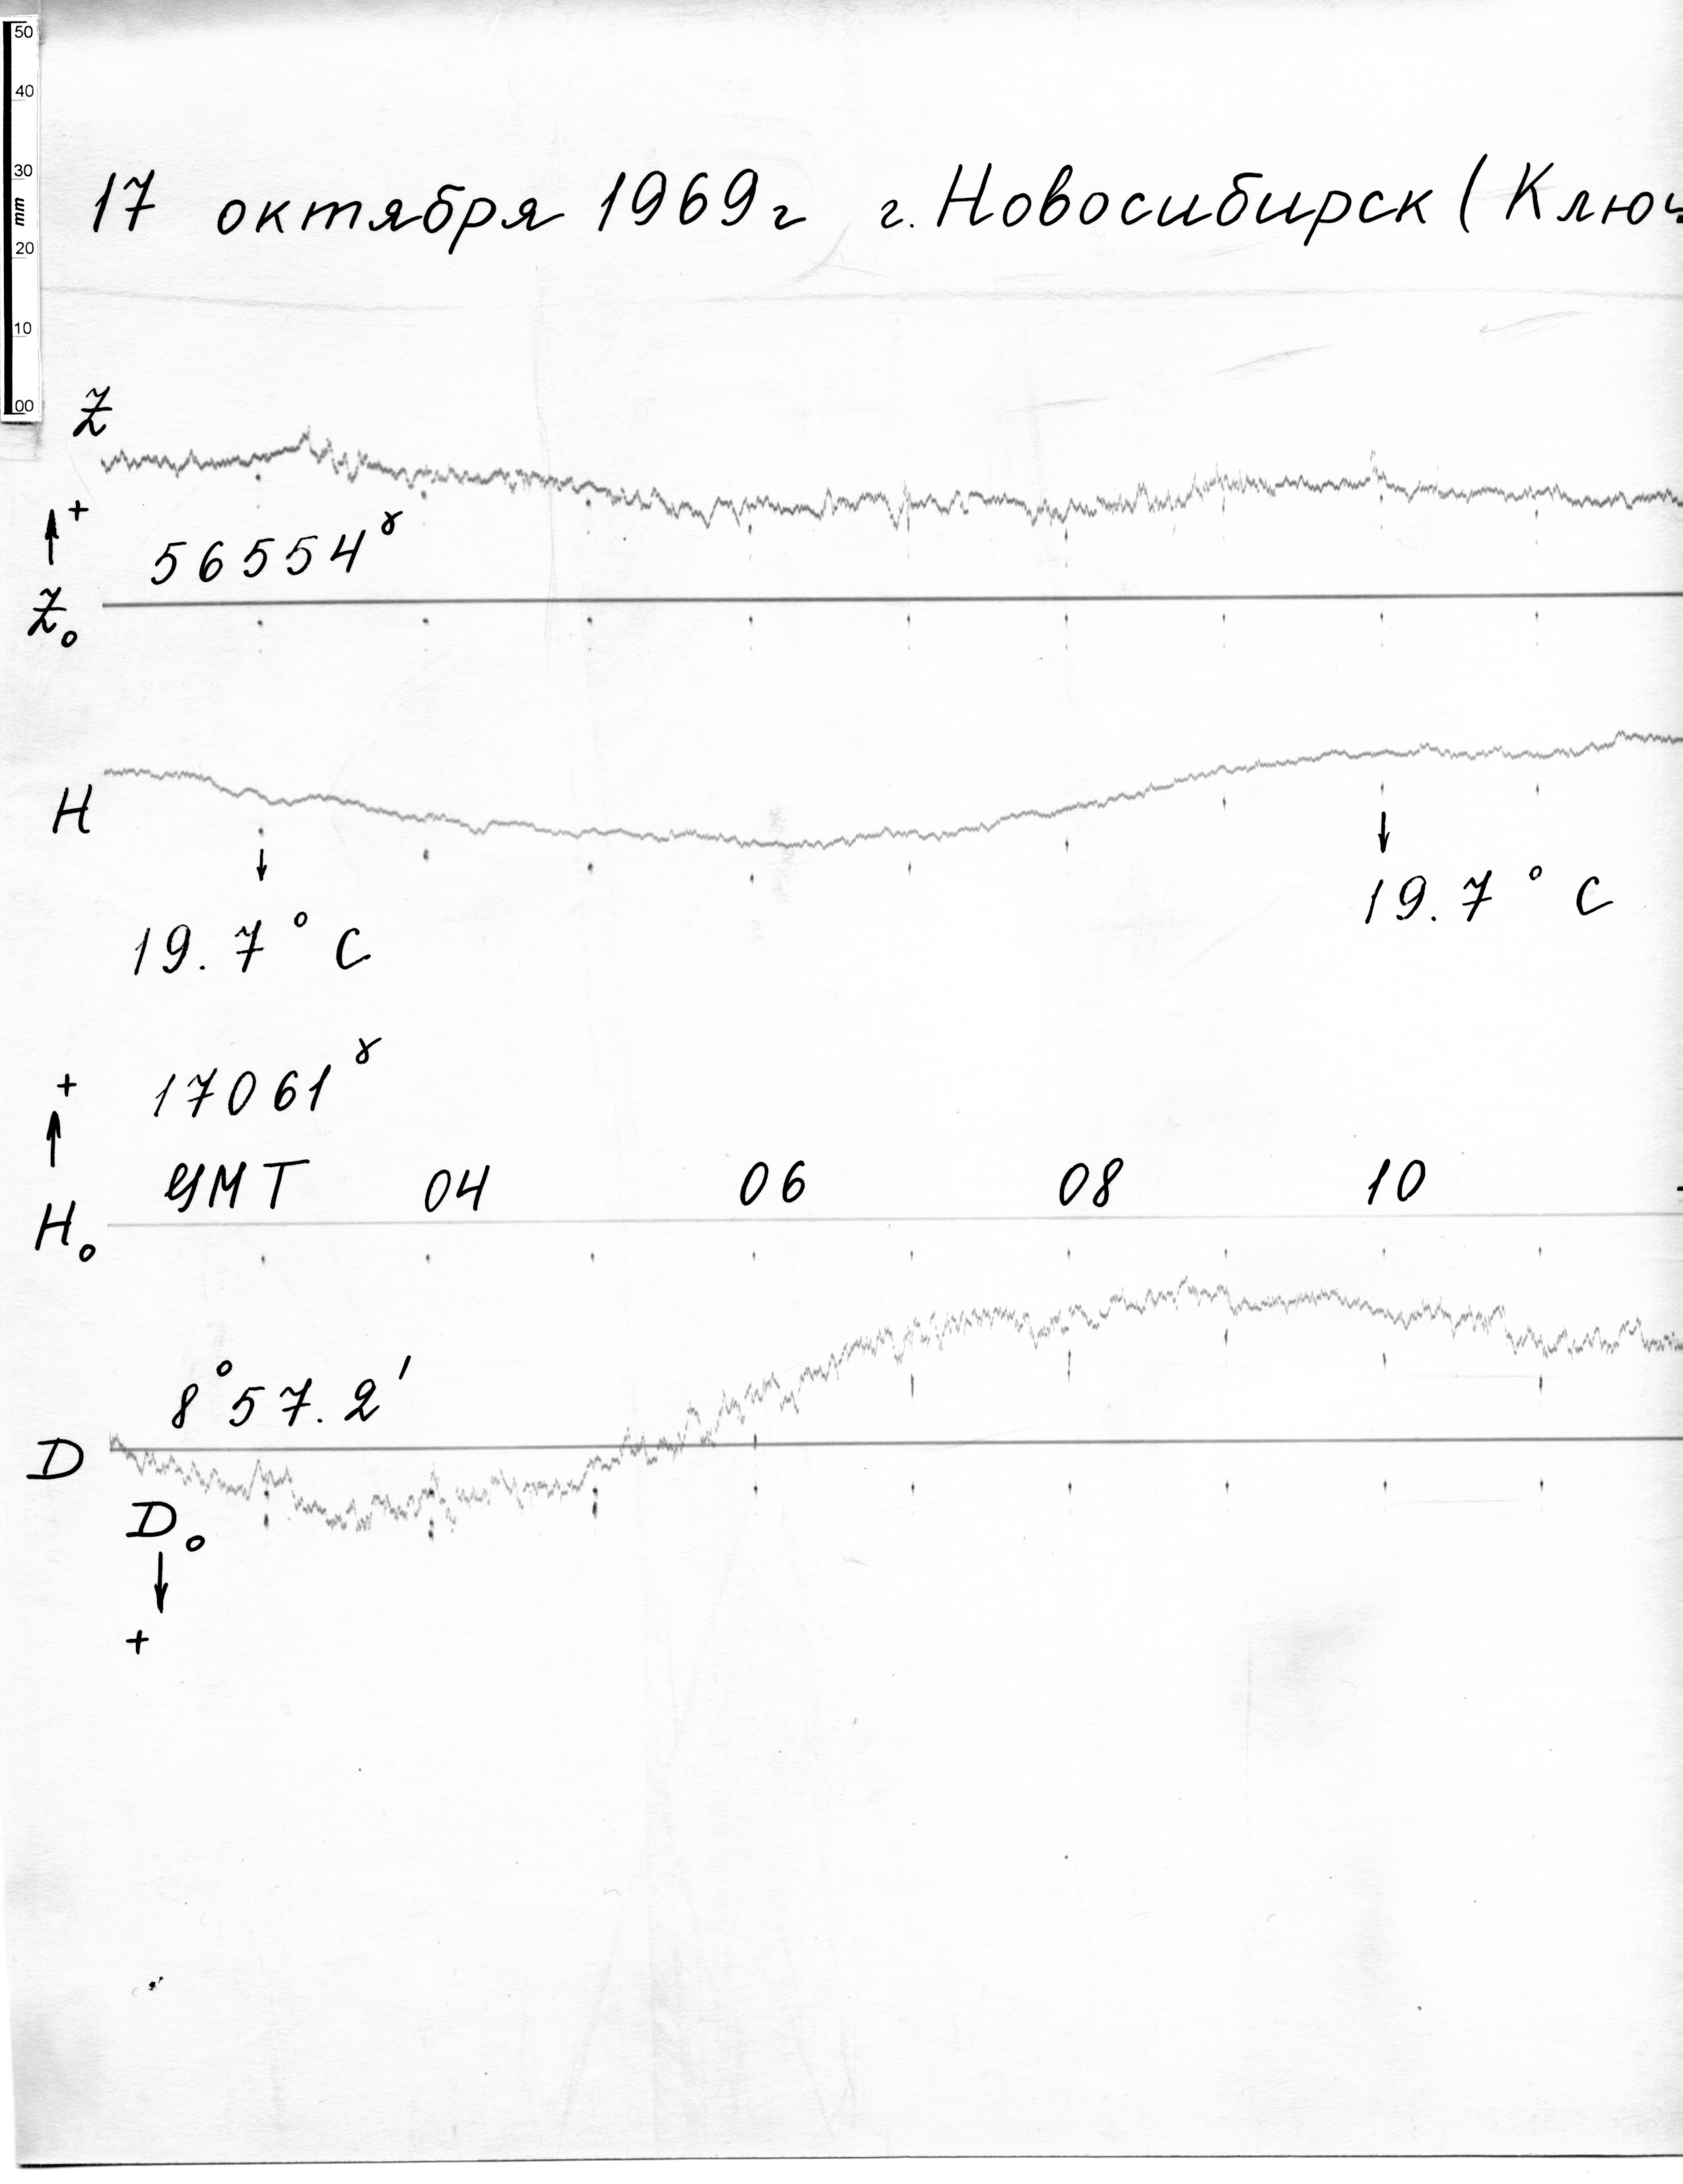 50
40
30
mm
20
10
00
17 октября 1969г г. Новосибирск (Ключ
Z
+
56554γ
Z₀
H
19.7° C
19.7° C
+
17061γ
УМТ 04 06 08 10
H₀
8°57.2'
D
D₀
+